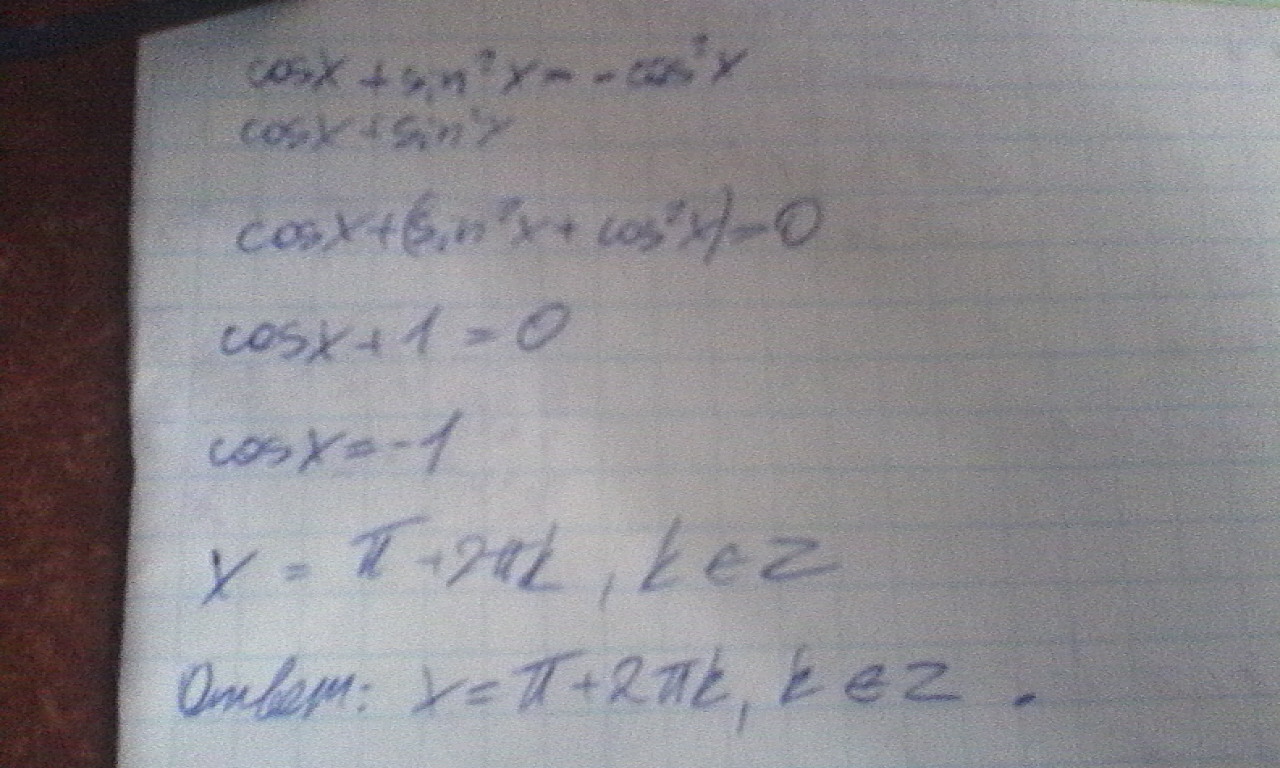 cosx + sin²x = - cos²x
cosx + sin²x
cosx + (sin²x + cos²x) = 0
cosx + 1 = 0
cosx = -1
x = π + 2πk, k ∈ Z
Ответ: x = π + 2πk, k ∈ Z.